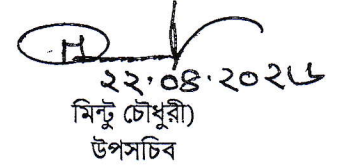 ২২.০৪.২০২৬
মিন্টু চৌধুরী)
উপসচিব